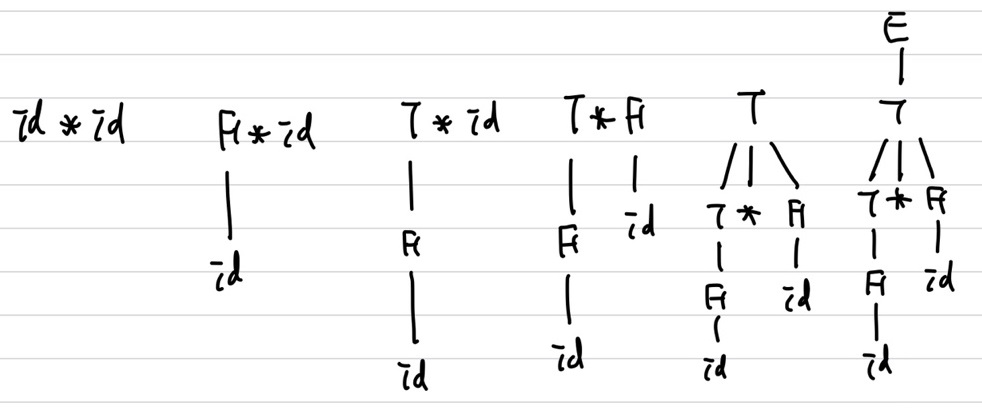 id * id
F * id
id
T * id
F
id
T * F
F id
id
T
T * F
F id
id
E
T
T * F
F id
id